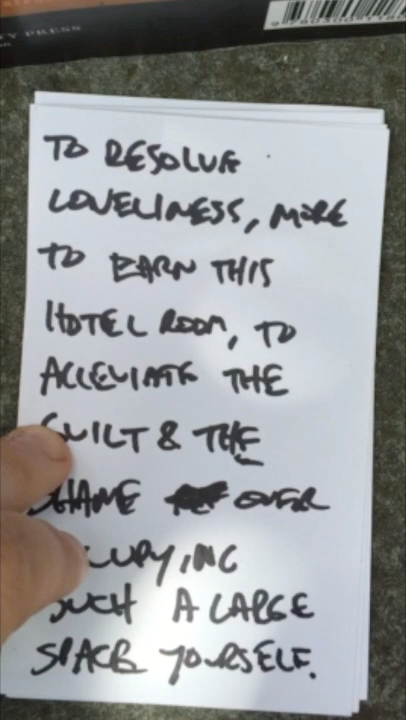 TY PRESS
TO RESOLVE
LONELINESS, MORE
TO EARN THIS
HOTEL ROOM, TO
ALLEVIATE THE
GUILT & THE
SHAME OVER
OCCUPYING
SUCH A LARGE
SPACE YOURSELF.